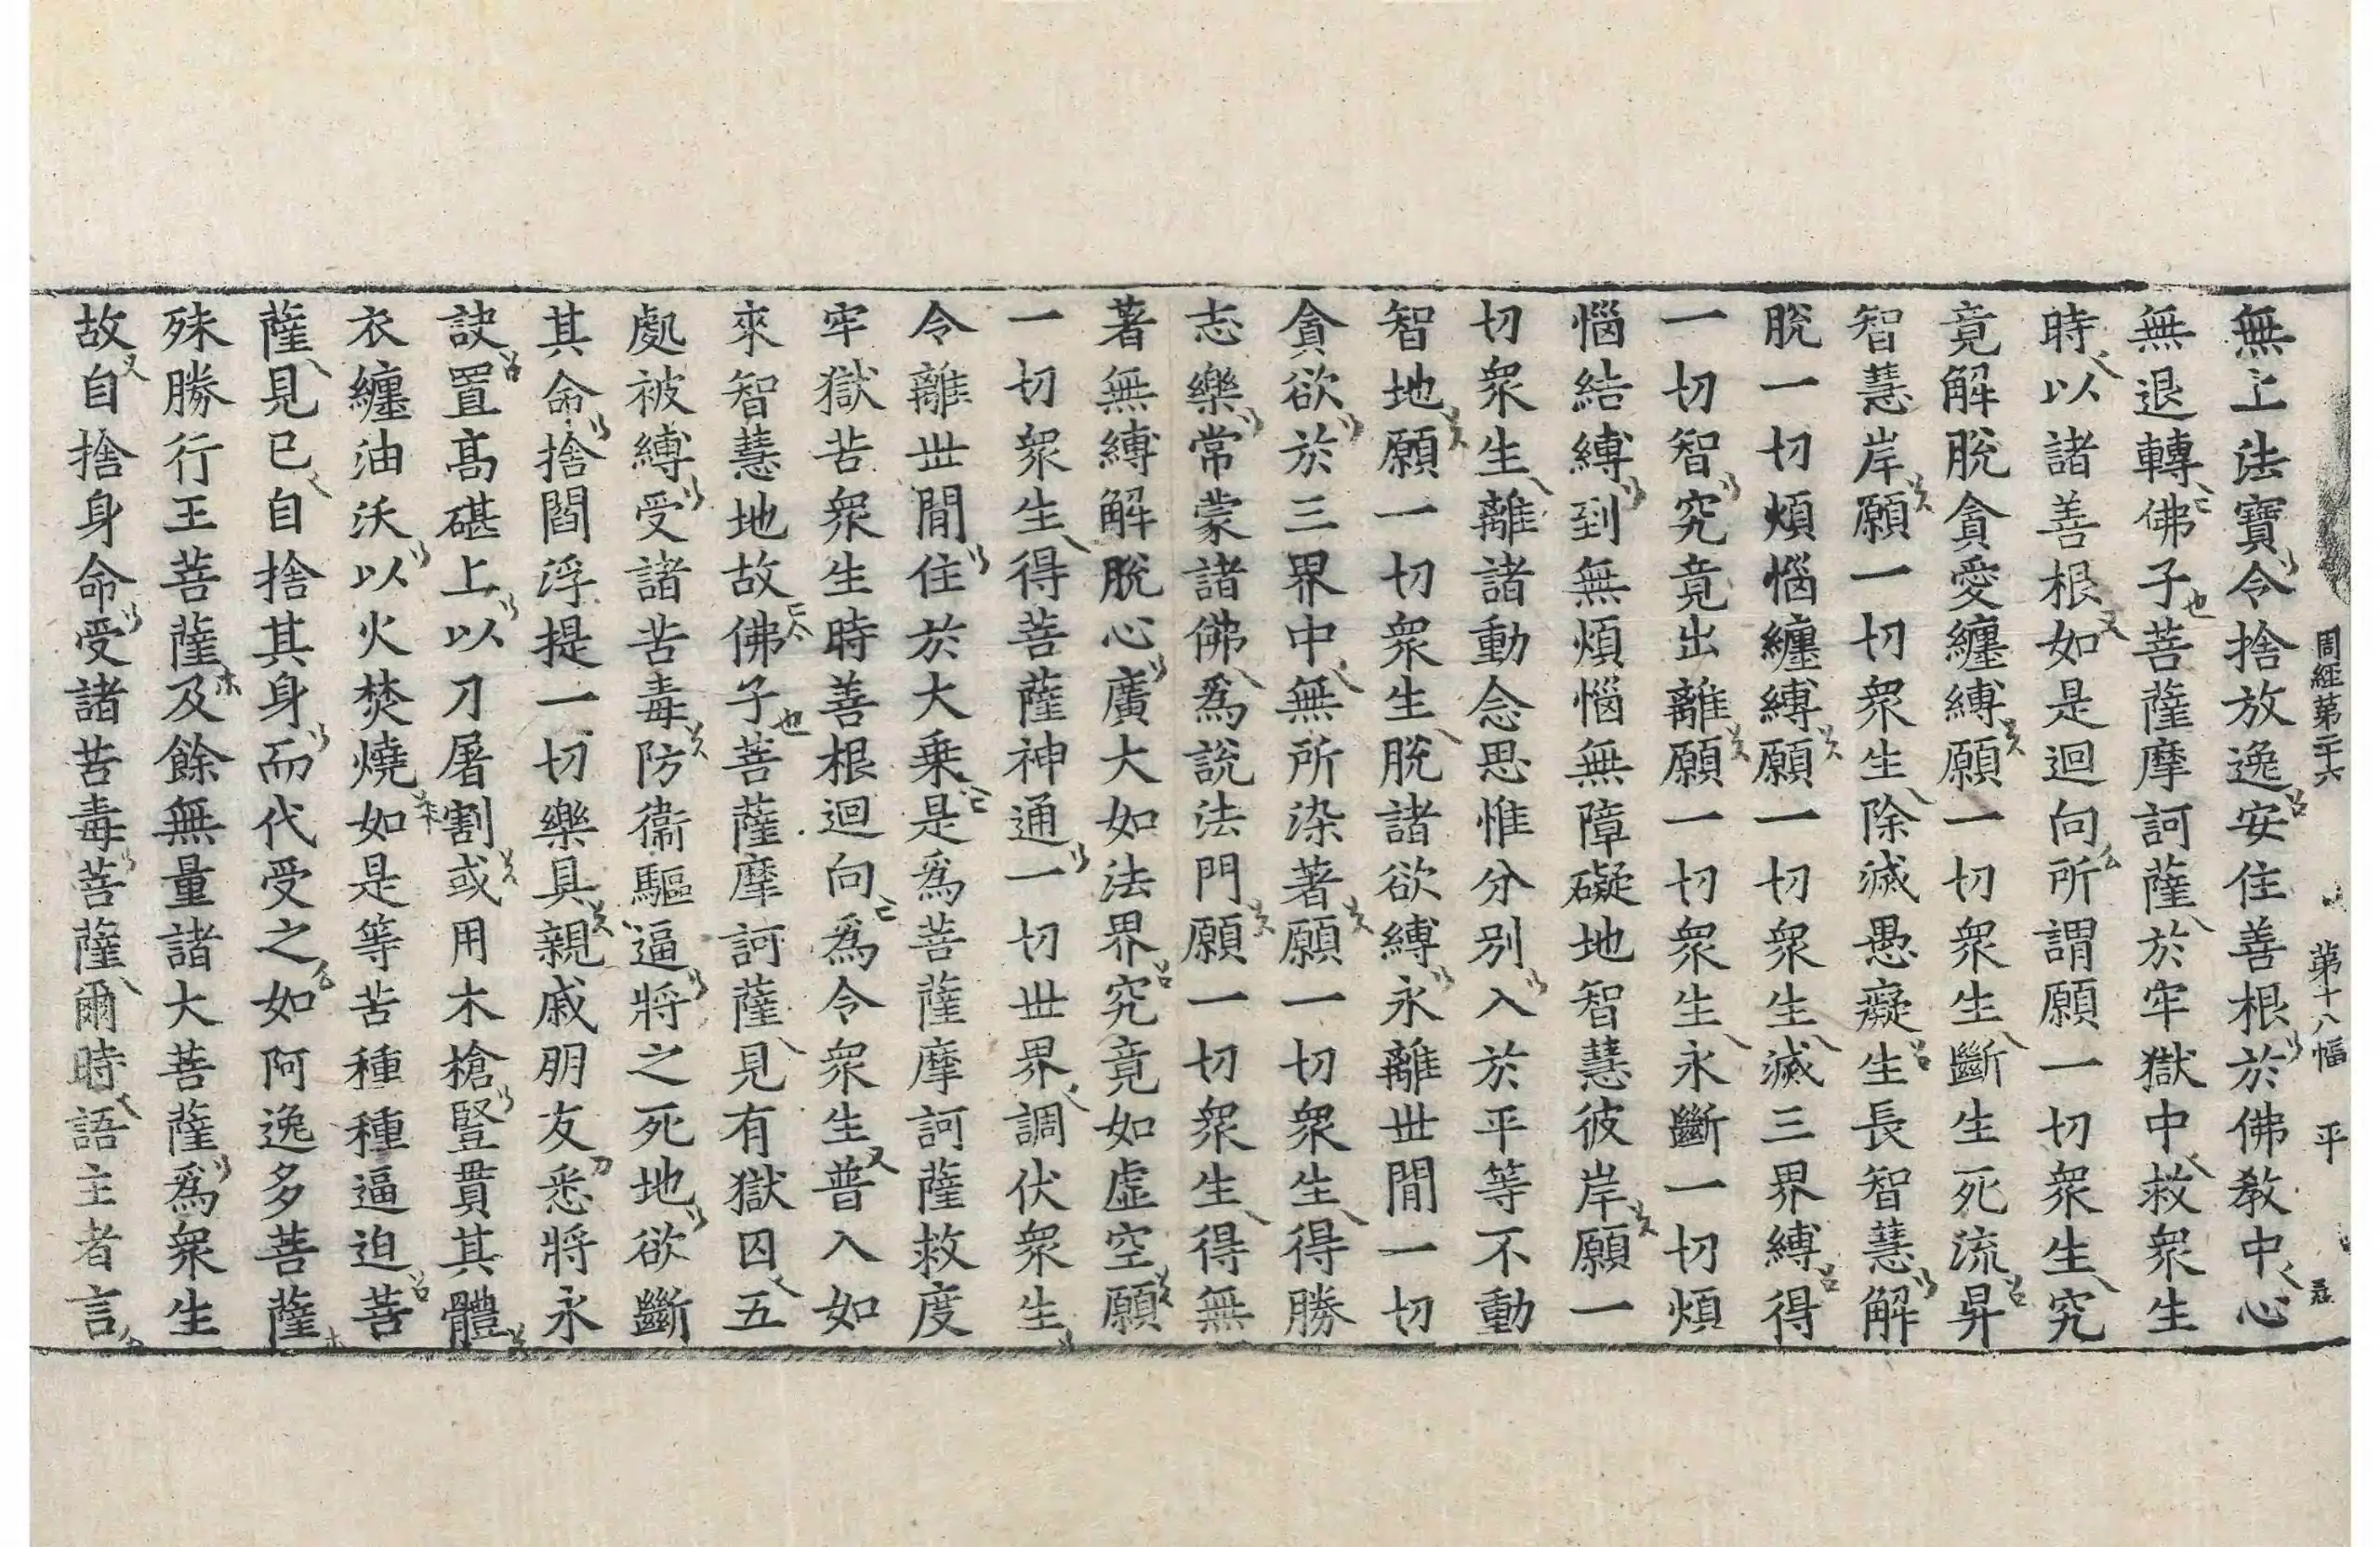 周經第二十六 第十八幅 平
無上法寶令捨放逸安住善根於佛教中心
無退轉佛子菩薩摩訶薩於牢獄中救衆生
時以諸善根如是迴向所謂願一切衆生究
竟解脫貪愛纏縛願一切衆生斷生死流昇
智慧岸願一切衆生除滅愚癡生長智慧解
脫一切煩惱纏縛願一切衆生滅三界縛得
一切智究竟出離願一切衆生永斷一切煩
惱結縛到無煩惱無障礙地智慧彼岸願一
切衆生離諸動念思惟分別入於平等不動
智地願一切衆生脫諸欲縛永離世間一切
貪欲於三界中無所染著願一切衆生得勝
志樂常蒙諸佛爲說法門願一切衆生得無
著無縛解脫心廣大如法界究竟如虛空願
一切衆生得菩薩神通一切世界調伏衆生
令離世間住於大乗是爲菩薩摩訶薩救度
牢獄苦衆生時善根迴向爲令衆生普入如
來智慧地故佛子菩薩摩訶薩見有獄囚五
處被縛受諸苦毒防衞驅逼將之死地欲斷
其命捨閻浮提一切樂具親戚朋友悉將永
訣置髙磓上以刀屠割或用木槍豎貫其體
衣纏油沃以火焚燒如是等苦種種逼迫菩
薩見已自捨其身而代受之如阿逸多菩薩
殊勝行王菩薩及餘無量諸大菩薩爲衆生
故自捨身命受諸苦毒菩薩爾時語主者言